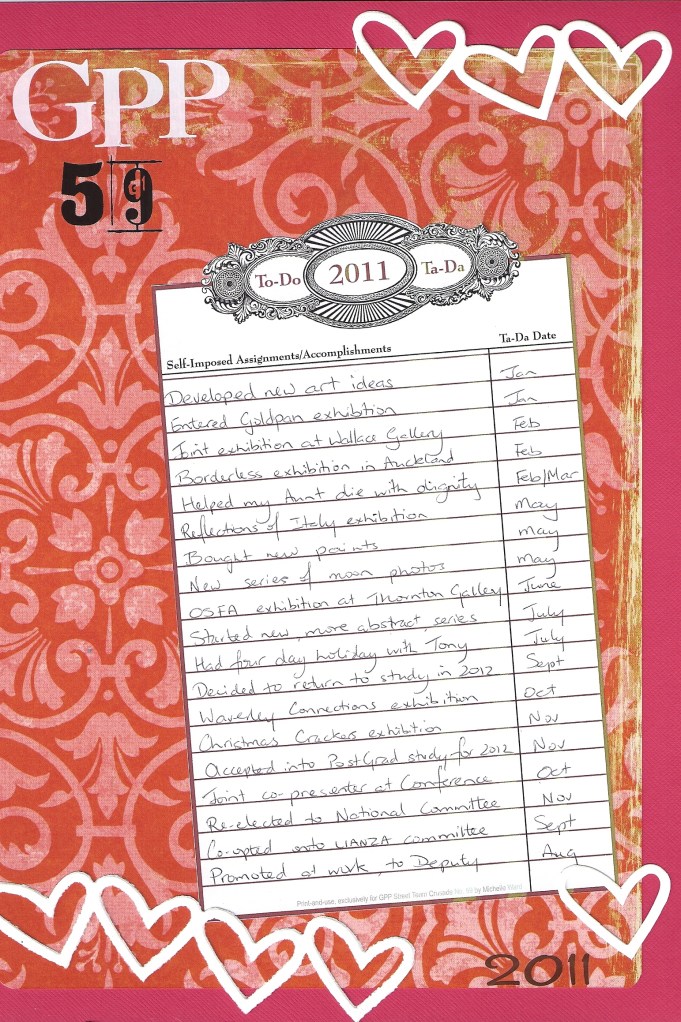 GPP
59
To-Do 2011 Ta-Da
Self-Imposed Assignments/Accomplishments Ta-Da Date
Developed new art ideas Jan
Entered Goldpan exhibition Jan
Joint exhibition at Wallace Gallery Feb
Borderless exhibition in Auckland Feb
Helped my Aunt die with dignity Feb/Mar
Reflections of Italy exhibition May
Bought new paints May
New series of moon photos May
OSFA exhibition at Thornton Gallery June
Started new, more abstract, series July
Had four day holiday with Tony July
Decided to return to study in 2012 Sept
Waverley Connections exhibition Oct
Christmas Crackers exhibition Nov
Accepted into PostGrad study for 2012 Nov
Joint co-presenter at Conference Oct
Re-elected to National Committee Nov
Co-opted onto LIANZA committee Sept
Promoted at work, to Deputy Aug
Print-and-use, exclusively for GPP Street Team Crusade No. 59 by Michelle Ward
2011